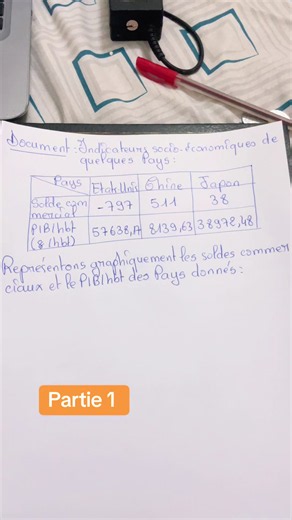 Document : Indicateurs socio-économiques de
quelques Pays :
Pays Etats Unis Chine Japon
Solde com
mercial -797 511 38
PIB/hbt
($/hbl) 57638,1 8139,63 38978,48
Représentons graphiquement les soldes commer
ciaux et le PIB/hbt des Pays donnés :
Partie 1